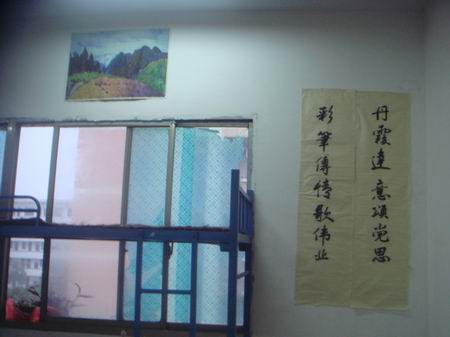 丹霞達意頌党恩
彩筆傳情歌伟业